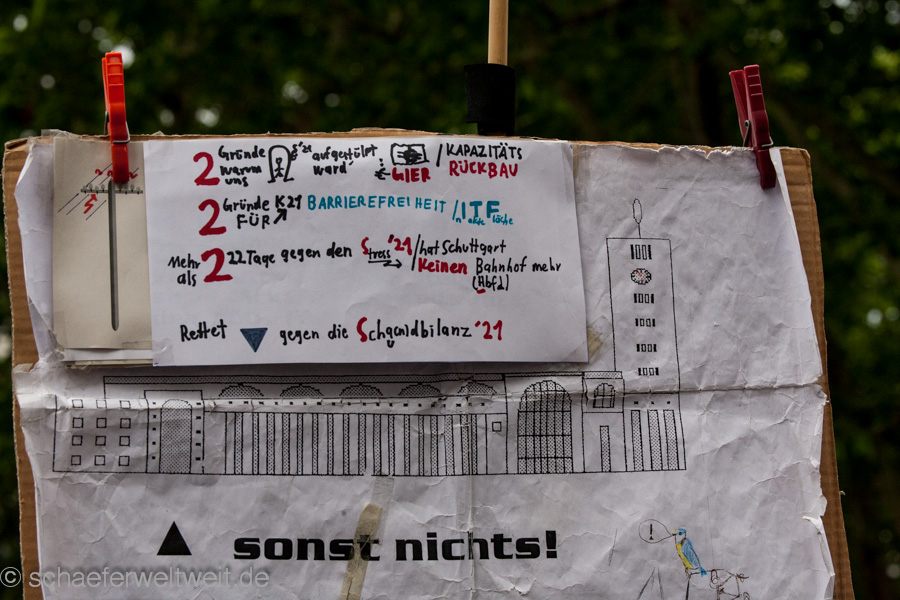 2 Gründe warum uns '21 aufgestülpt ward' GIER / KAPAZITÄTS RÜCKBAU
2 Gründe FÜR K21 BARRIEREFREIHEIT / ITF
Mehr als 2 22 Tage gegen den Stress '21 / hat Schuttgart Keinen Bahnhof mehr (Hbf↓)
Rettet gegen die Schandbilanz '21
sonst nichts!
!
© schaeferweltweit.de